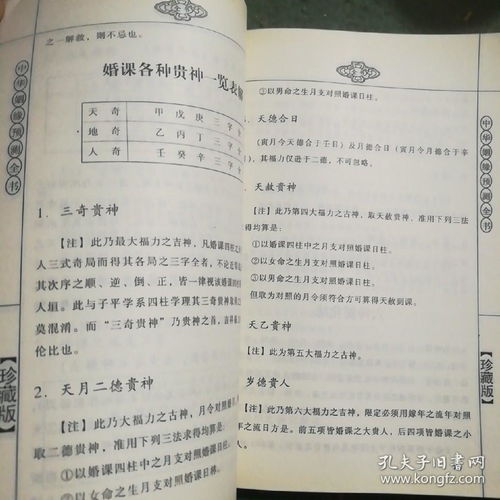 之一解救，则不忌也。
婚课各种贵神一览表解
天 奇 甲 戊 庚 三 字 全
地 奇 乙 丙 丁 三 字 全
人 奇 壬 癸 辛 三 字 全
1. 三奇贵神
【注】此乃最大福力之吉神，凡婚课四柱之
人三式奇局而得其各局之三字全者，不论近
其次序之顺、逆、倒、正，皆一律视该婚课
人垣。此与子平学系四柱学理其三奇贵神取
莫混淆。而“三奇贵神”乃贵神之首，吉祥
伦比也。
2. 天月二德贵神
【注】此乃大福力之吉神，月令对照
取二德贵神，准用下列三法求得均算是：
①以婚课四柱中之月支对照婚课日柱
②以女命之生月支对照婚课日柱。
③以男命之生月支对照婚课日柱。
天德合日
（寅月今天德合于壬日）及月德合日（寅月令月德合于辛
），其福力仅逊于二德，不可忽略。
天赦贵神
【注】此乃第四大福力之古神，取天赦贵神，准用下列三法
得均算是：
①以婚课四柱中之月支对照婚课日柱。
②以女命之生月支对照婚课日柱。
③以男命之生月支对照婚课日柱。
但取为对照的月令须符合方可算得天赦到课。
天乙贵神
【注】此为第五大福力之古神。
岁德贵人
【注】此乃第六大福力之吉神，限定必须用嫁年之流年对照
年之流日方是。前五项皆婚课之大贵人，后四项皆婚课之小
人。
中华姻缘预测全书
【珍藏版】
中华姻缘预测全书
【珍藏版】
孔夫子旧书网